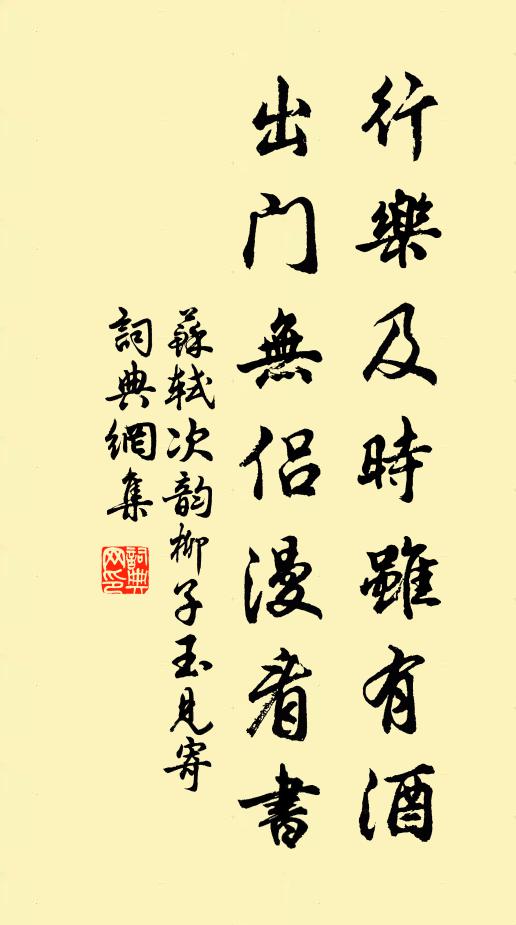 行樂及時雖有酒
出門無侶漫看書
蘇軾次韵柳子玉見寄
詞典網集
詞典网印